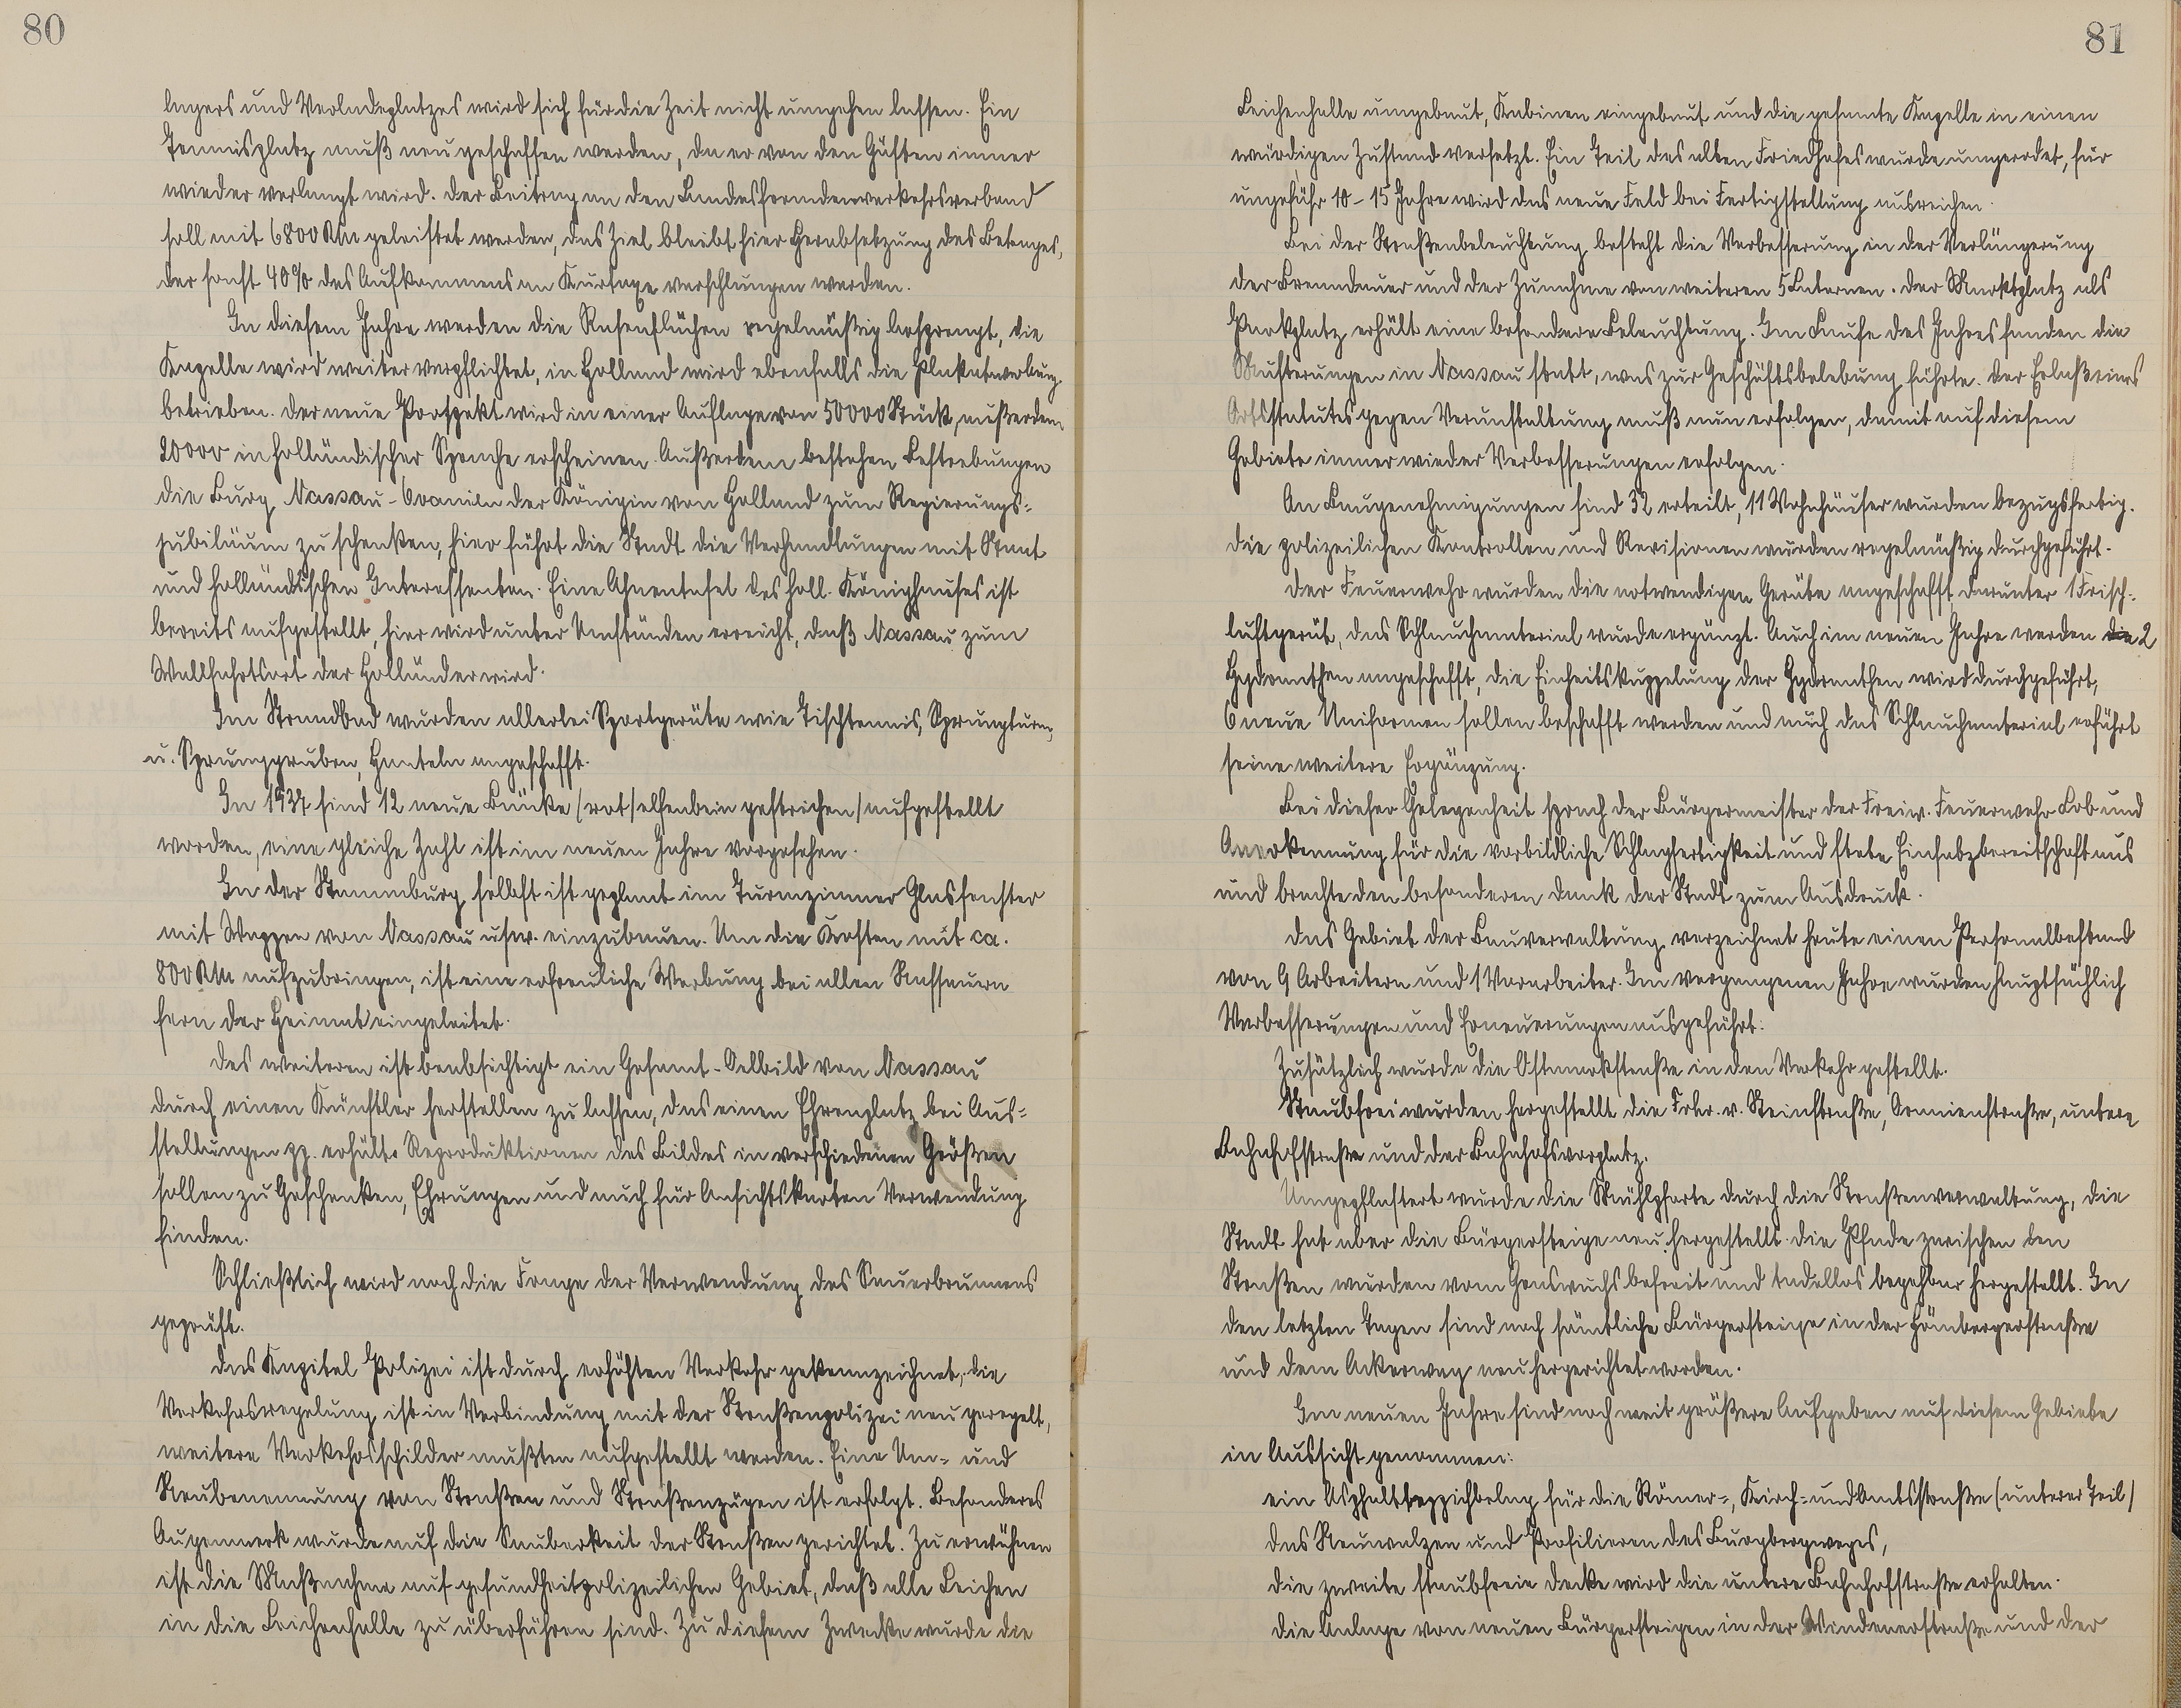 80
lagers und Verladeplatzes wird sich für die Zeit nicht umgehen lassen. Ein
Tennisplatz muß neu geschaffen werden, da er von den Gästen immer
wieder verlangt wird. Der Beitrag an den Landesfremdenverkehrsverband
soll mit 6800 RM geleistet werden, das Ziel bleibt hier Herabsetzung des Betrages,
der sonst 40% des Aufkommens an Kurtaxe verschlungen werden.
In diesem Jahre werden die Rasenflächen regelmäßig besprengt, die
Kapelle wird weiter verpflichtet, in Holland wird ebenfalls die Plakatwerbung
betrieben. Der neue Prospekt wird in einer Auflage von 50000 Stück, außerdem
20000 in holländischer Sprache erscheinen. Außerdem bestehen Bestrebungen
die Burg Nassau-Oranien der Königin von Holland zum Regierungs-
jubiläum zu schenken, hier führt die Stadt die Verhandlungen mit Staat
und holländischen Interessenten. Eine Ahnentafel des holl. Königshauses ist
bereits aufgestellt, hier wird unter Umständen erreicht, daß Nassau zum
Wallfahrtsort der Holländer wird.
Im Strandbad wurden allerlei Sportgeräte wie Tischtennis, Sprungturm,
u. Sprunggruben, Hanteln angeschafft.
In 1937 sind 12 neue Bänke /rot/elfenbein gestrichen/ aufgestellt
worden, eine gleiche Zahl ist im neuen Jahre vorgesehen.
In der Stammburg selbst ist geplant im Turmzimmer Glasfenster
mit Wappen von Nassau usw. einzubauen. Um die Kosten mit ca.
800 RM aufzubringen, ist eine erfreuliche Werbung bei allen Nassauern
fern der Heimat eingeleitet.
Des weiteren ist beabsichtigt ein Gesamt-Oelbild von Nassau
durch einen Künstler herstellen zu lassen, das einen Ehrenplatz bei Aus-
stellungen pp. erhält. Reproduktionen des Bildes in verschiedenen Größen
sollen zu Geschenken, Ehrungen und auch für Ansichtskarten Verwendung
finden.
Schließlich wird noch die Frage der Verwendung des Sauerbrunnens
geprüft.
Das Kapitel Polizei ist durch erhöhten Verkehr gekennzeichnet, die
Verkehrsregelung ist in Verbindung mit der Straßenpolizei neu geregelt,
weitere Verkehrsschilder mußten aufgestellt werden. Eine Um- und
Neubenennung von Straßen und Straßenzügen ist erfolgt. Besonderes
Augenmerk wurde auf die Sauberkeit der Straßen gerichtet. Zu erwähnen
ist die Maßnahme auf gesundheitpolizeilichen Gebiet, daß alle Leichen
in die Leichenhalle zu überführen sind. Zu diesem Zwecke wurde die
81
Leichenhalle umgebaut, Kabinen eingebaut und die gesamte Kapelle in einen
würdigen Zustand versetzt. Ein Teil des alten Friedhofes wurde umgerodet, für
ungefähr 10-15 Jahre wird das neue Feld bei Fertigstellung ausreichen.
Bei der Straßenbeleuchtung besteht die Verbesserung in der Verlängerung
der Brenndauer und der Zunahme von weiteren 5 Laternen. Der Marktplatz als
Parkplatz erhält eine besondere Beleuchtung. Im Laufe des Jahres fanden die
Musterungen in Nassau statt, was zur Geschäftsbelebung führte. Der Erlaß eines
Ortsstatutes gegen Verunstaltung muß nun erfolgen, damit auf diesem
Gebiete immer wieder Verbesserungen erfolgen.
An Baugenehmigungen sind 32 erteilt, 11 Wohnhäuser wurden bezugsfertig.
Die polizeilichen Kontrollen und Revisionen wurden regelmäßig durchgeführt.
Der Feuerwehr wurden die notwendigen Geräte angeschafft darunter 1 Frisch-
luftgerät, das Schlauchmaterial wurde ergänzt. Auch im neuen Jahre werden die 2
Hydranthen angeschafft, die Einheitskuppelung der Hydranthen wird durchgeführt,
6 neue Uniformen sollen beschafft werden und auch das Schlauchmaterial erfährt
seine weitere Ergänzung.
Bei dieser Gelegenheit sprach der Bürgermeister der Freiw. Feuerwehr Lob und
Anerkennung für die vorbildliche Schlagfertigkeit und stete Einsatzbereitschaft aus
und brachte den besonderen Dank der Stadt zum Ausdruck.
Das Gebiet der Bauverwaltung verzeichnet heute einen Personalbestand
von 9 Arbeitern und 1 Vorarbeiter. Im vergangenen Jahre wurden hauptsächlich
Verbesserungen und Erneuerungen ausgeführt:
Zusätzlich wurde die Ostmarkstraße in den Verkehr gestellt.
Staubfrei wurden hergestellt die Frhr. v. Steinstraße, Oranienstraße, untere
Bahnhofstraße und der Bahnhofsvorplatz.
Umgepflastert wurde die Mühlpforte durch die Straßenverwaltung, die
Stadt hat aber die Bürgersteige neu hergestellt. Die Pfade zwischen den
Straßen wurden vom Graswuchs befreit und tadellos begehbar hergestellt. In
den letzten Tagen sind noch sämtliche Bürgersteige in der Hömbergerstraße
und dem Ackerweg neu hergerichtet worden.
Im neuen Jahre sind noch weit größere Aufgaben auf diesem Gebiete
in Aussicht genommen:
ein Asphaltteppichbelag für die Römer-, Kirch- und Amtsstraße (unterer Teil/
das Neuwalzen und Profilieren des Burgbergweges,
die zweite staubfreie Decke wird die untere Bahnhofstraße erhalten.
die Anlage von neuen Bürgersteigen in der Windenerstraße und der